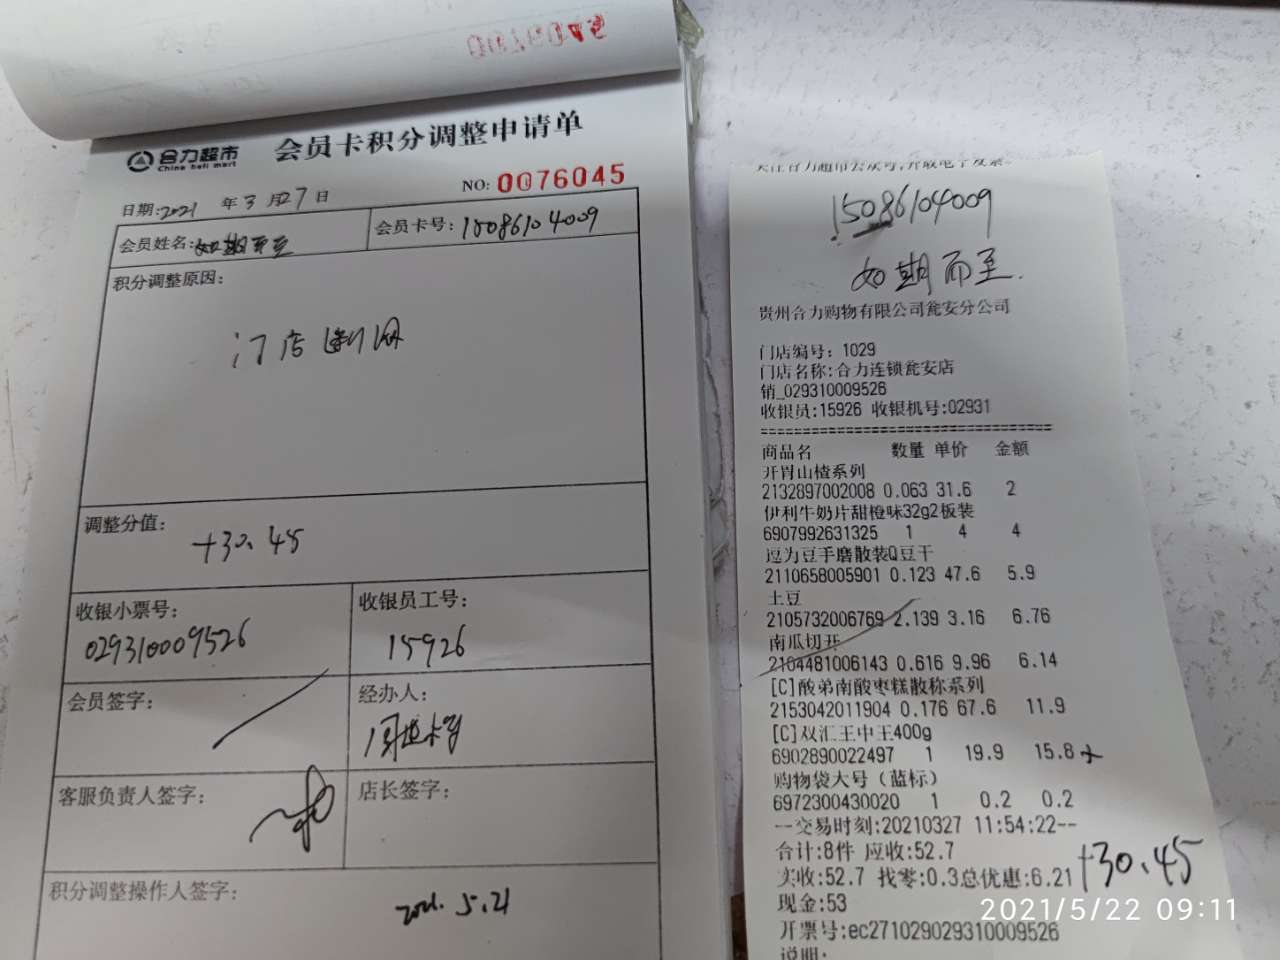 合力超市
China heli mart
会员卡积分调整申请单
NO: 0076045
日期:2021 年3月27日
会员姓名:如期而至
会员卡号:15086104009
积分调整原因:
门店断网
调整分值:
+30.45
收银小票号:
029310009526
收银员工号:
15926
会员签字:
经办人:
客服负责人签字:
店长签字:
积分调整操作人签字:
2021.5.21
15086104009
如期而至.
贵州合力购物有限公司瓮安分公司
门店编号: 1029
门店名称:合力连锁瓮安店
销_029310009526
收银员:15926 收银机号:02931
================================
商品名 数量 单价 金额
开胃山楂系列
2132897002008 0.063 31.6 2
伊利牛奶片甜橙味32g2板装
6907992631325 1 4 4
逗为豆手磨散装Q豆干
2110658005901 0.123 47.6 5.9
土豆
2105732006769 2.139 3.16 6.76
南瓜切开
2104481006143 0.616 9.96 6.14
[C]酸弟南酸枣糕散称系列
2153042011904 0.176 67.6 11.9
[C]双汇王中王400g
6902890022497 1 19.9 15.8
购物袋大号(蓝标)
6972300430020 1 0.2 0.2
--交易时刻:20210327 11:54:22--
合计:8件 应收:52.7
实收:52.7 找零:0.3总优惠:6.21
+30.45
现金:53
开票号:ec271029029310009526
说明:
2021/5/22 09:11